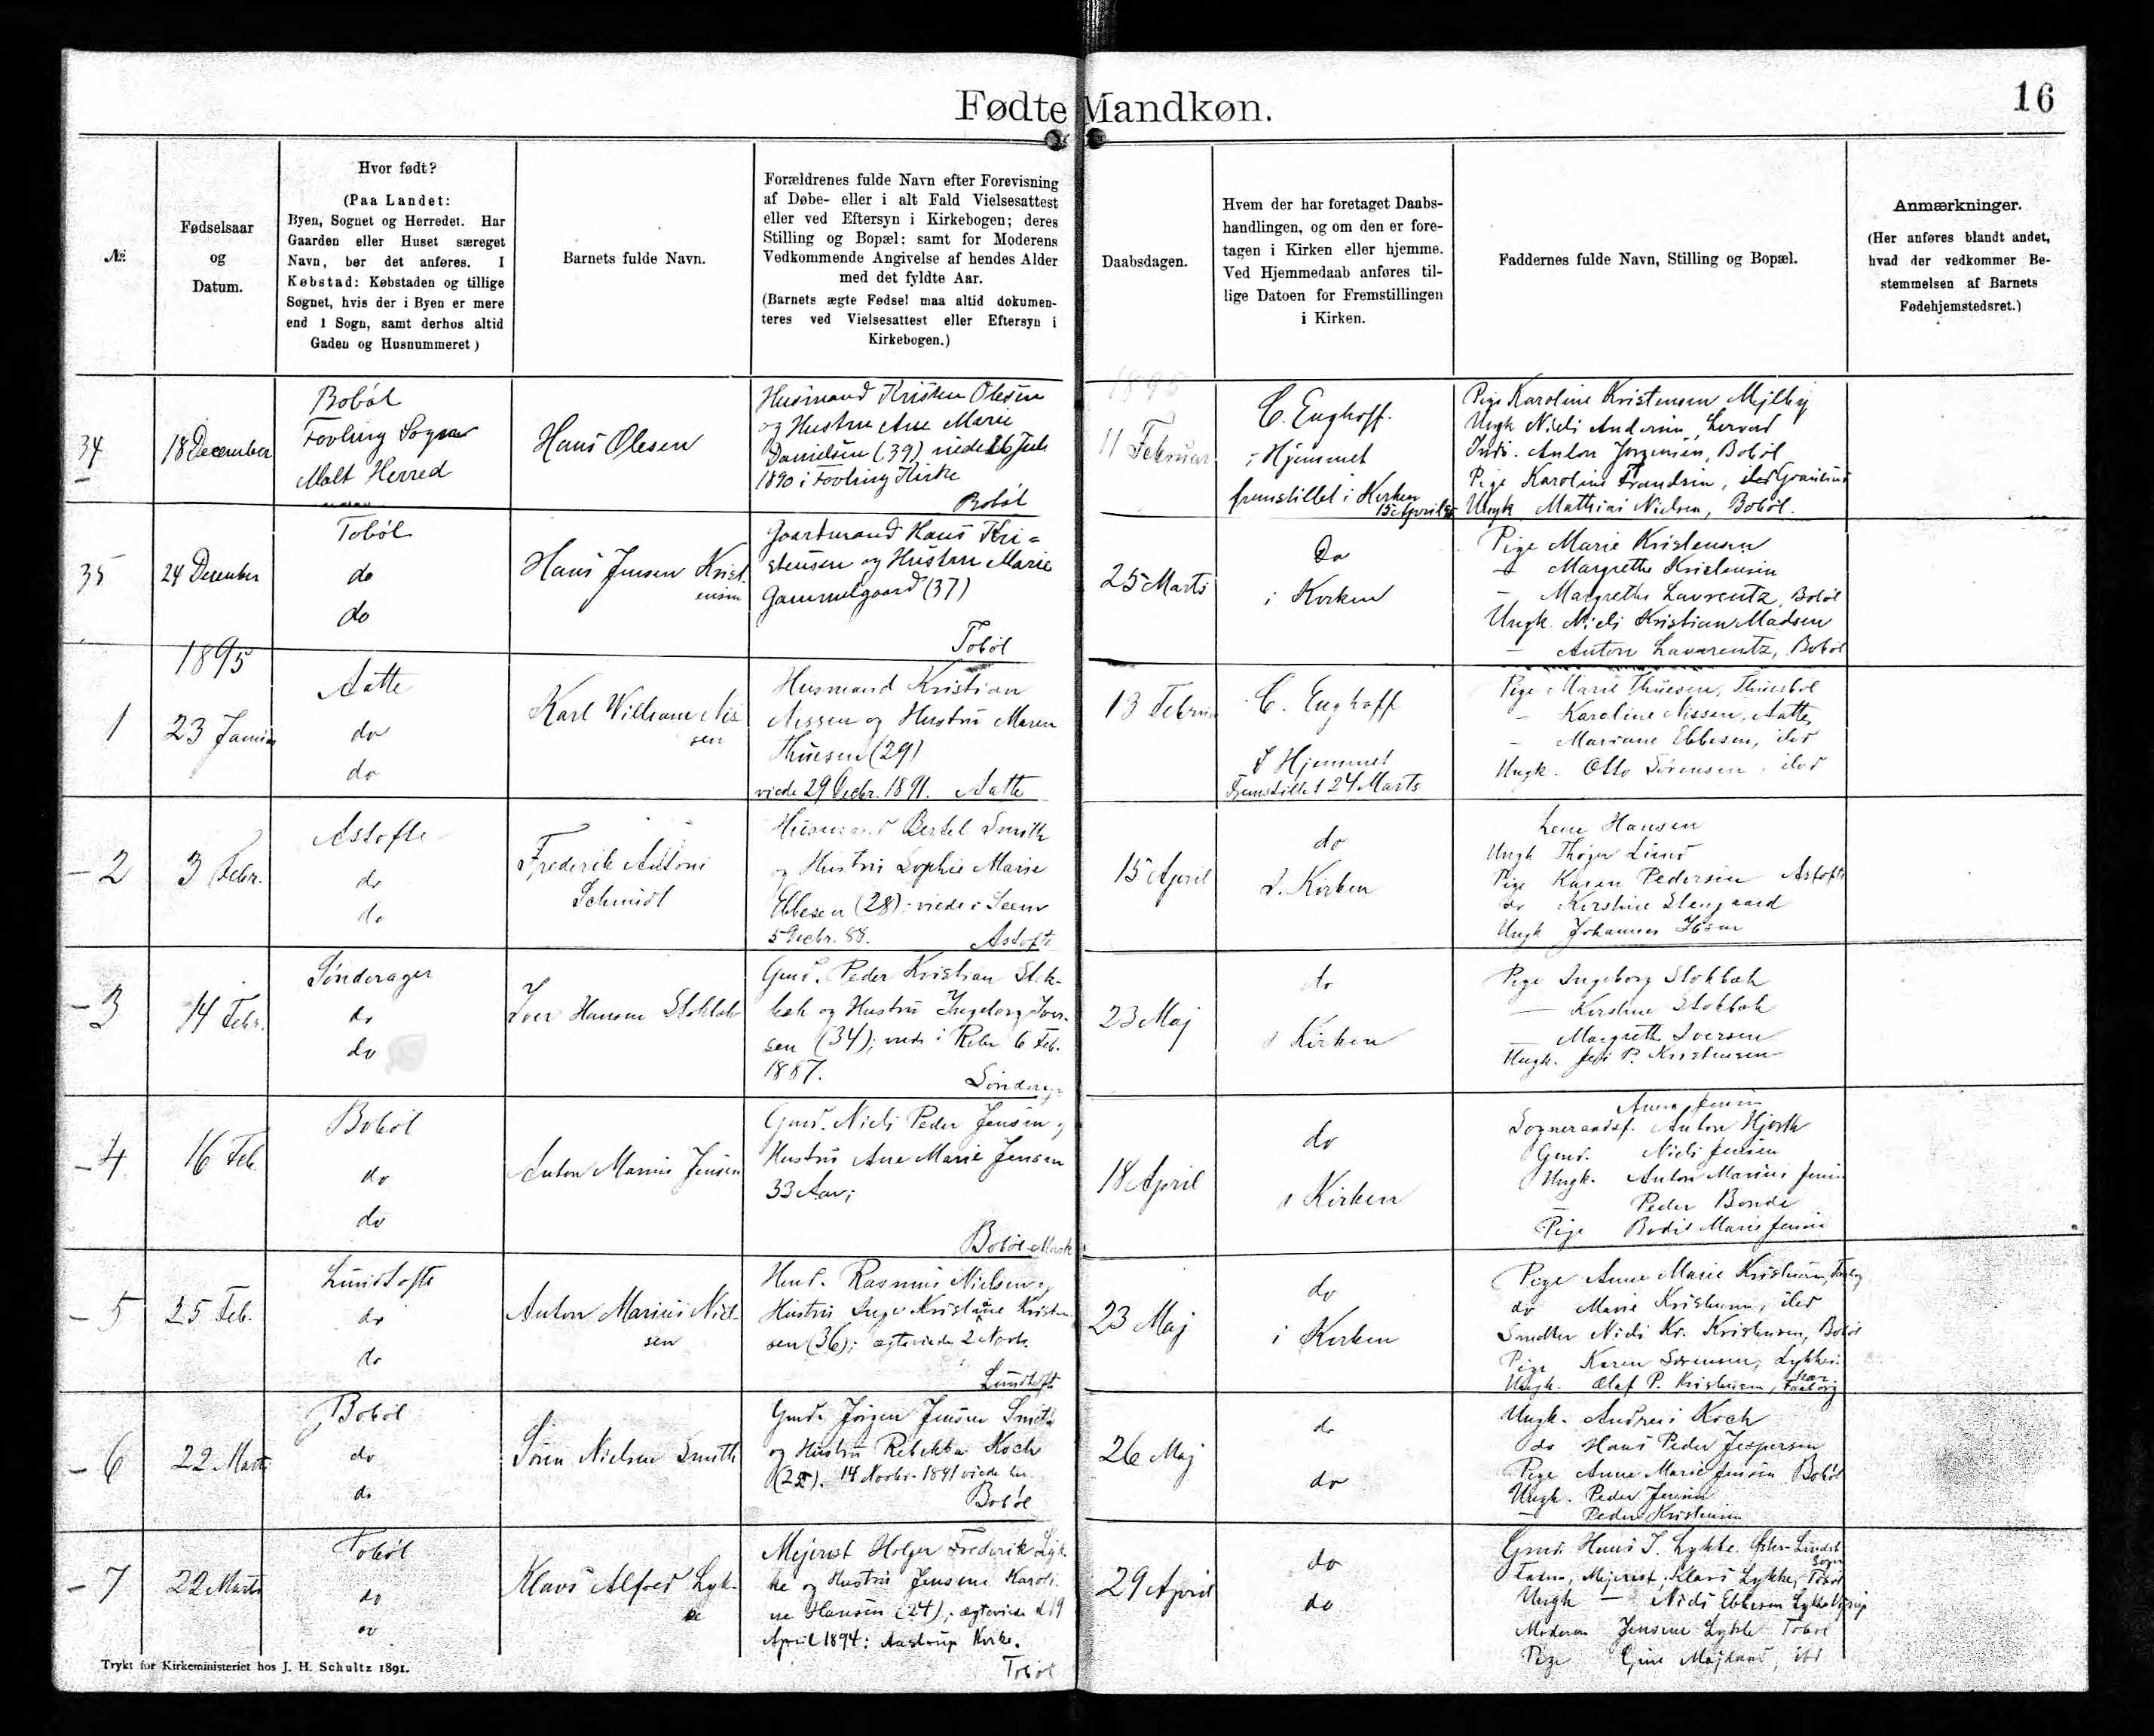 Fødte Mandkøn.
16
№
Fødselsaar
og
Datum.
Hvor født?
(Paa Landet:
Byen, Sognet og Herredet. Har
Gaarden eller Huset særeget
Navn, bør det anføres. I
Købstad: Købstaden og tillige
Sognet, hvis der i Byen er mere
end 1 Sogn, samt derhos altid
Gaden og Husnummeret)
Barnets fulde Navn.
Forældrenes fulde Navn efter Forevisning
af Døbe- eller i alt Fald Vielsesattest
eller ved Eftersyn i Kirkebogen; deres
Stilling og Bopæl; samt for Moderens
Vedkommende Angivelse af hendes Alder
med det fyldte Aar.
(Barnets ægte Fødsel maa altid dokumen-
teres ved Vielsesattest eller Eftersyn i
Kirkebogen.)
Daabsdagen.
Hvem der har foretaget Daabs-
handlingen, og om den er fore-
tagen i Kirken eller hjemme.
Ved Hjemmedaab anføres til-
lige Datoen for Fremstillingen
i Kirken.
Faddernes fulde Navn, Stilling og Bopæl.
Anmærkninger.
(Her anføres blandt andet,
hvad der vedkommer Be-
stemmelsen af Barnets
Fødehjemstedsret.)
34
18 December
Boböl
Fovling Sogn
Malt Herred
Hans Olesen
Husmand Kristen Olesen
og Hustru Ane Marie
Danielsen (39) viede 26 Juli
1890 i Fovling Kirke
Boböl
1895
11 Februar
C. Enghoff.
i Hjemmet
fremstillet i Kirken
15 April
Pige Karoline Kristensen Mejlby
Ungk Niels Andersen,
Inds. Anton Jørgensen, Boböl
Pige Karoline Frandsen,
Ungk Mathias Nielsen, Boböl.
35
24 December
Toböl
do
do
Hans Jensen Krist-
ensen
Gaardmand Hans Kri=
stensen og Hustru Marie
Gammelgaard (37)
Toböl
25 Marts
Do
i Kirken
Pige Marie Kristensen
– Margrethe Kristensen
– Margrethe Lavrentz, Boböl
Ungk. Niels Kristian Madsen
– Anton Lavrentz, Boböl
1895
1
23 Januar
Aatte
do
do
Karl William Nis
sen
Husmand Kristian
Nissen og Hustru Maren
Thuesen (29)
viede 29 Decbr. 1891. Aatte
13 Februar
C. Enghoff
I Hjemmet
Fremstillet 24 Marts
Pige Marie Thuesen,
– Karoline Nissen, Aatte
– Mariane Ebbesen,
Ungk. Otto Sørensen,
– 2
3 Febr.
Astofte
do
do
Frederik Antoni
Schmidt
Husmand Bertel Smith
og Hustru Sophie Marie
Ebbesen (28); viede i Seem
5 Decbr. 88. Astofte
15 April
do
I. Kirken
Lene Hansen
Ungk Thøger Lund
Pige Karen Pedersen Astofte
do Kirstine Stengaard
Ungk Johannes
– 3
14 Febr.
Sönderager
do
do
Iver Hansen Stokbak
Gmd. Peder Kristian Stok-
bak og Hustru Ingeborg Iver-
sen (34); viede i Ribe 6 Feb.
1887.
23 Maj
do
i Kirken
Pige Ingeborg Stokbak
– Kirstine Stokbak
– Margrethe Iversen
Ungk. P. Kristensen
– 4
16 Feb.
Boböl
do
do
Anton Marius Jensen
Gmd. Niels Peder Jensen og
Hustru Ane Marie Jensen
33 Aar;
Boböl Mark
18 April
do
i Kirken
Anna Jensen
Sogneraadsf. Anton Hjorth
Gmd. Niels Jensen
Ungk. Anton Marius Jensen
– Peder Bonde
Pige Bodil Marie Jensen
– 5
25 Feb.
Lundtofte
do
do
Anton Marius Niel-
sen
Hmd. Rasmus Nielsen og
Hustru Inger Kristine Kristen
sen (36); ægteviede 2 Novb.
Lundtofte
23 Maj
do
i Kirken
Pige Anne Marie Kristensen,
do Marie Kristensen,
Snedker Niels Kr. Kristensen, Boböl
Pige Karen Sørensen,
Ungk. Olaf P. Kristensen, Faaborg
– 6
22 Marts
Boböl
do
do
Sören Nielsen Smith
Gmd. Jörgen Jensen Smith
og Hustru Rebekka Koch
14 Novbr. 1891 viede her
Boböl
26 Maj
do
do
Ungk. Andreas Koch
do Hans Peder Jespersen
Pige Anne Marie Jensen Boböl
Ungk. Peder Jensen
– Peder Kristensen
– 7
22 Marts
Toböl
do
do
Klavs Alfred Lyk-
ke
Mejerist Holger Frederik Lyk-
ke og Hustru Jensine Karoli-
ne Hansen (24); ægteviede d 19
April 1894; Aastrup Kirke.
Toböl
29 April
do
do
Gmd. Hans J. Lykke
Sogn
Mejerist, Klavs Lykke, Toböl
Ungk – Niels Ebbesen Lykke
Moderen Jensine Lykke Toböl
Pige
Trykt for Kirkeministeriet hos J. H. Schultz 1891.